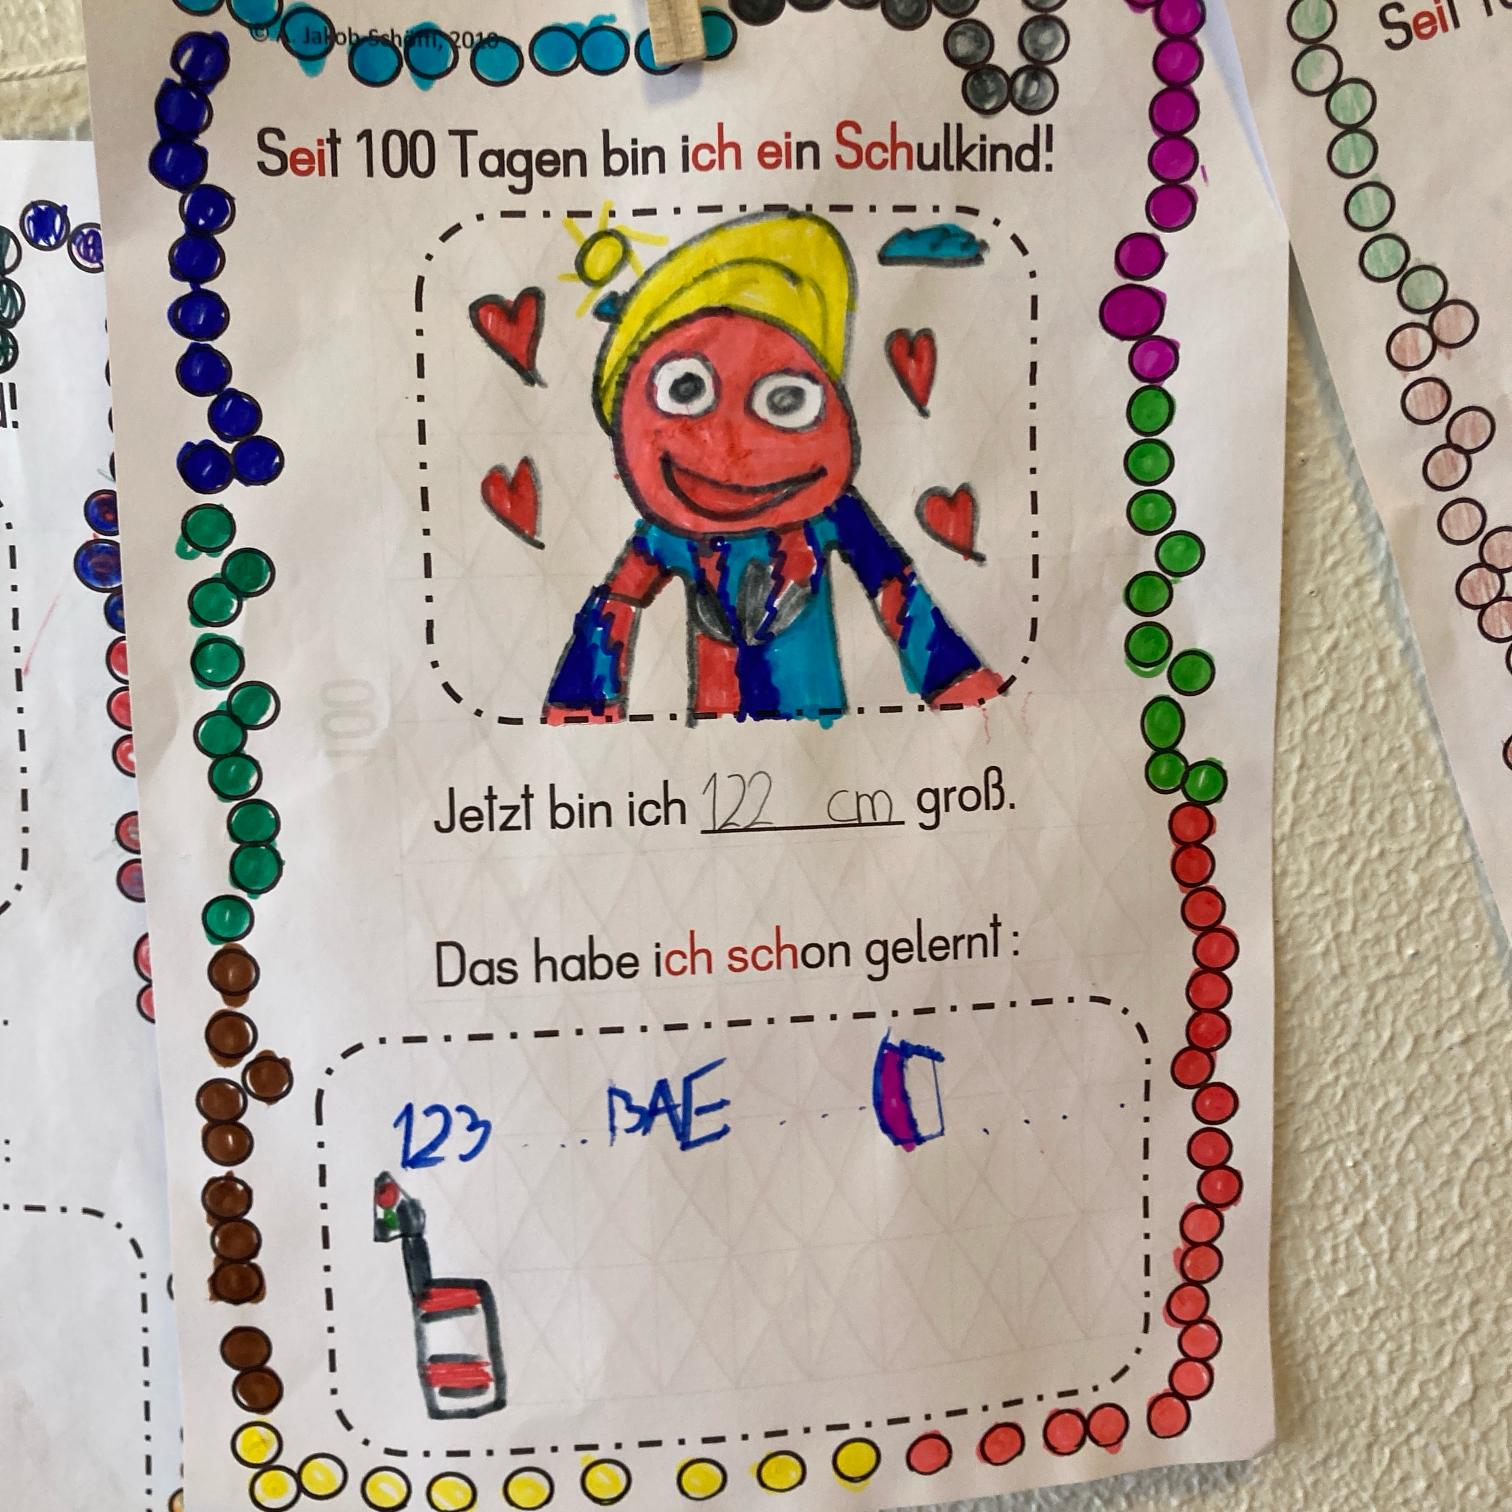 © A. Jakob-Schöffl, 2010
Seit 100 Tagen bin ich ein Schulkind!
100
Jetzt bin ich 122 cm groß.
Das habe ich schon gelernt:
123 .... BAE ....  ....
Seit